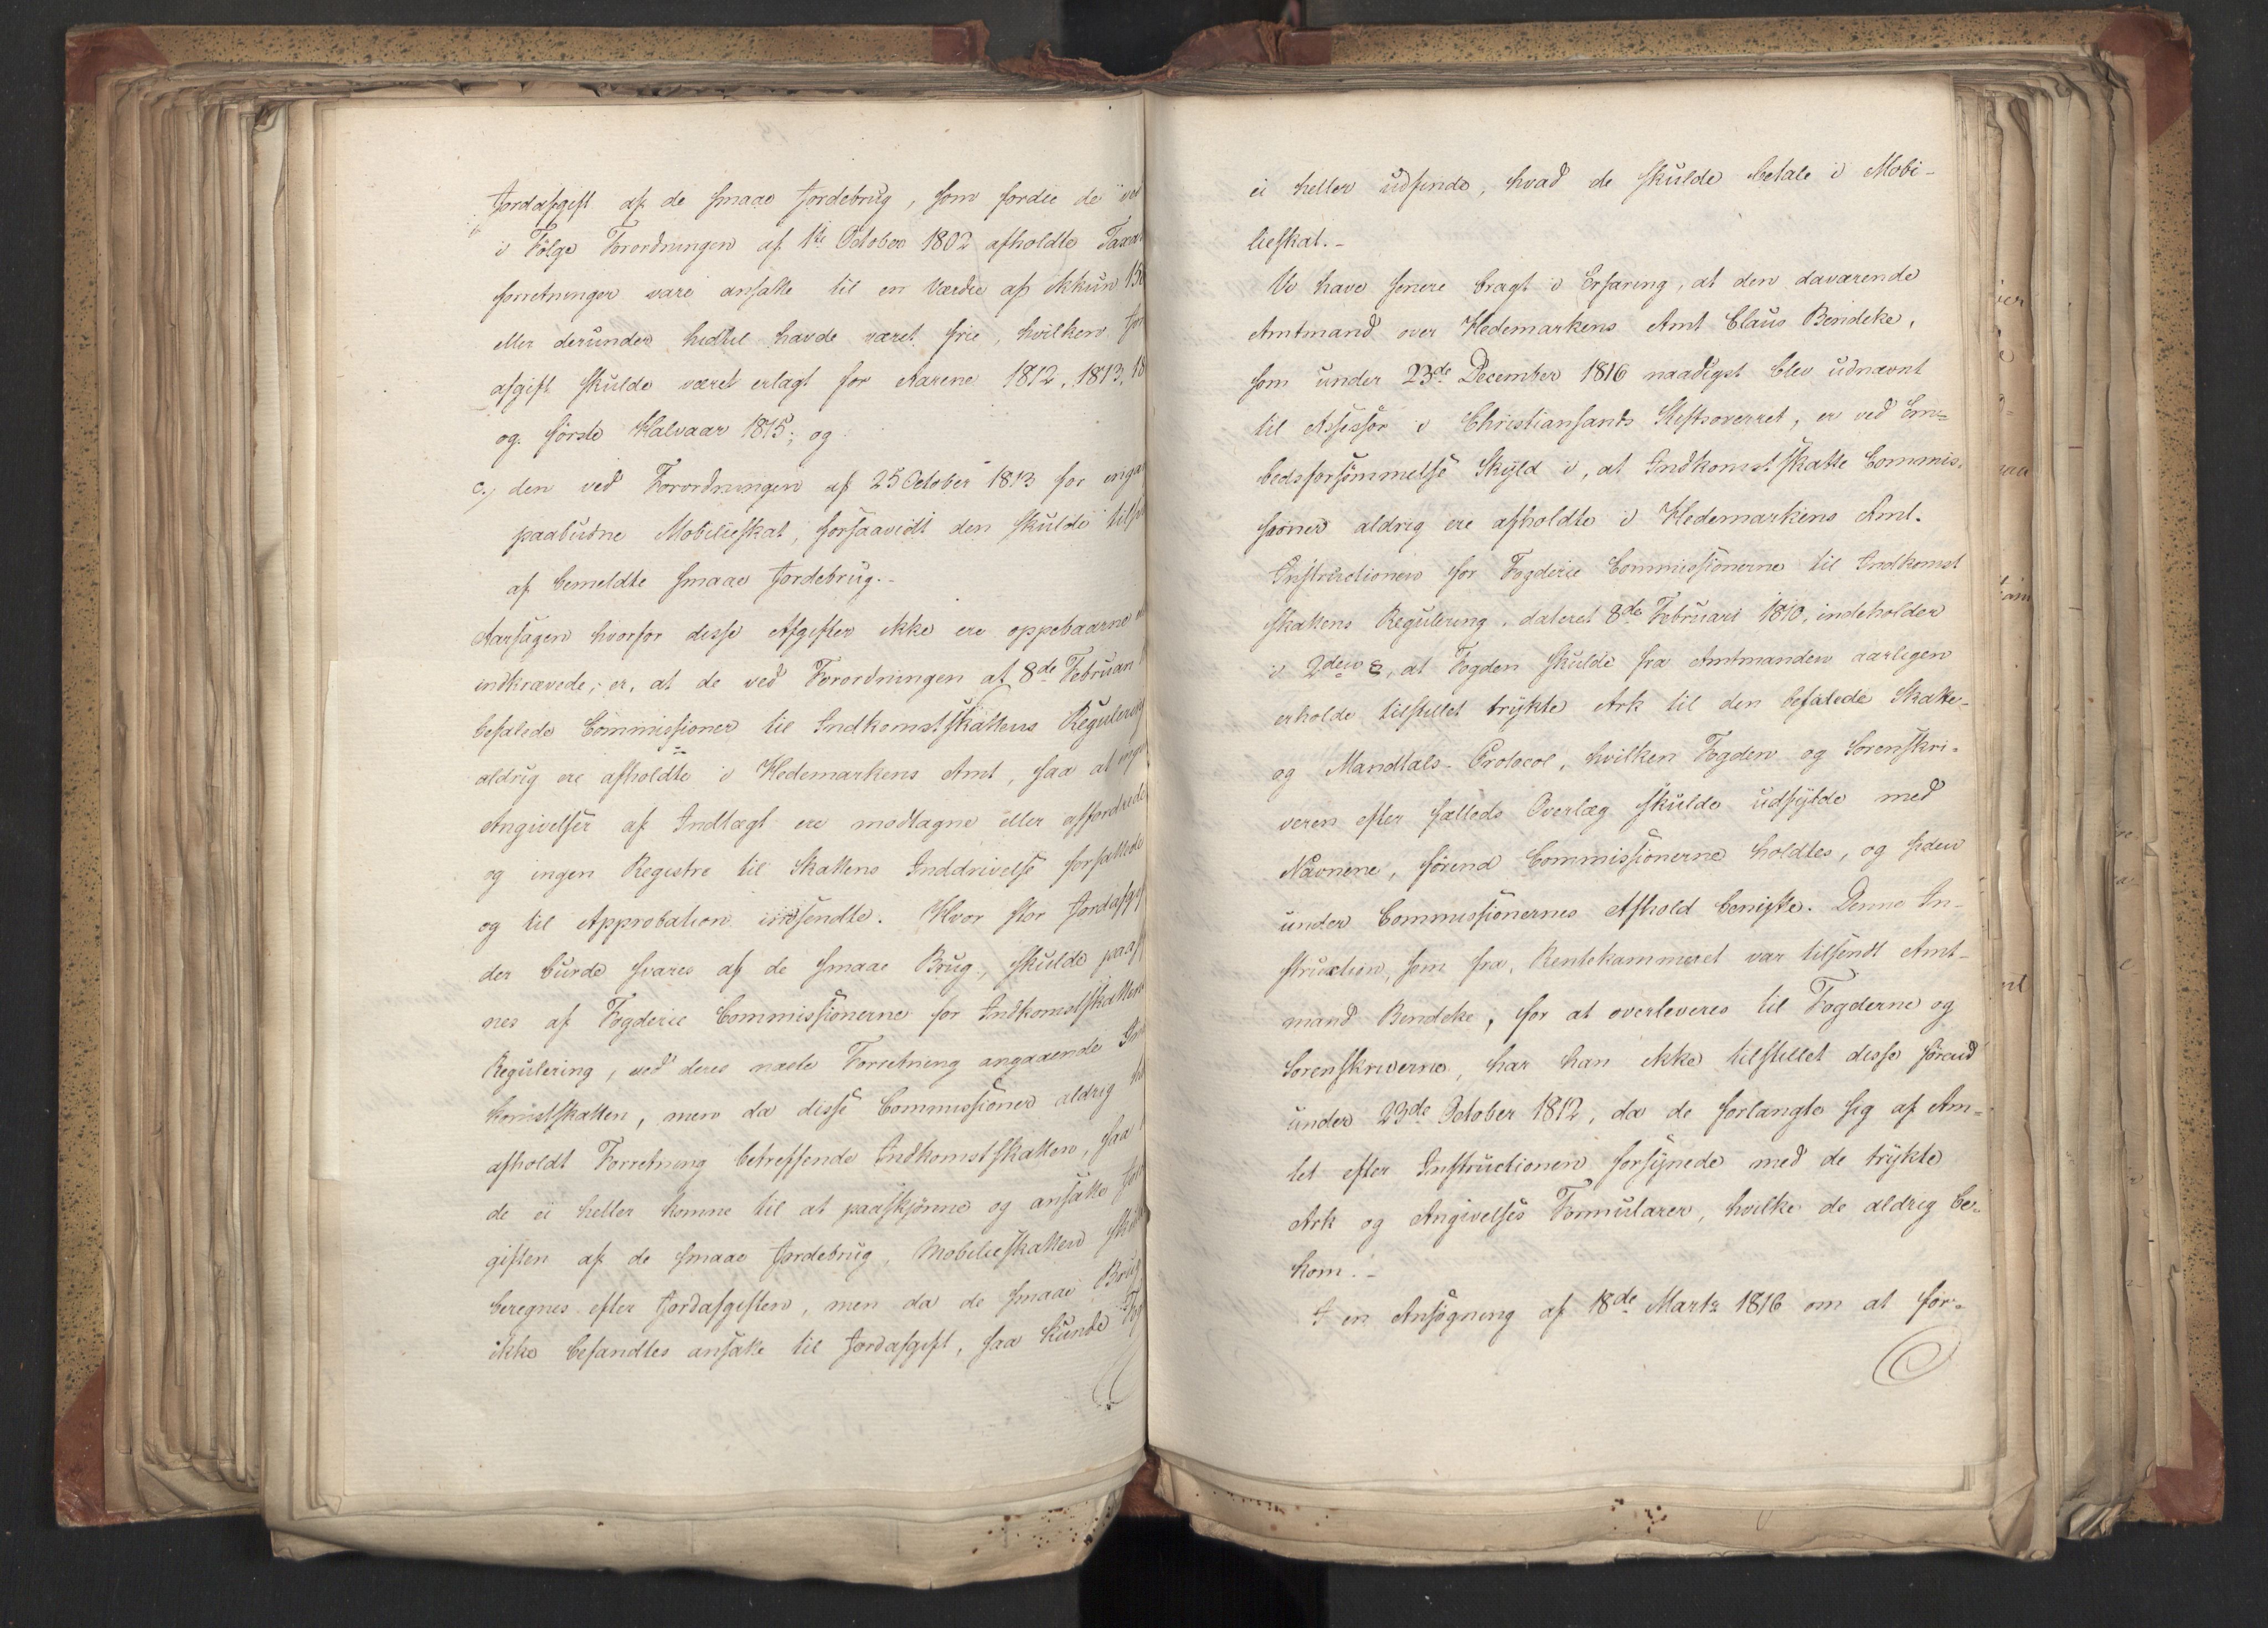 Jordafgift af de smaae Jordebrug, som fordie de ved
i Fölge Forordningen af 1te October 1802 afholdte Taxa
forretninger vare ansatte til en Værdie af ikkun 150
eller derunder, hidtil havde været frie, hvilken Jor
afgift skulde været erlagt for Aarene 1812, 1813, 18
og förste Halvaar 1815; og
c.) den ved Forordningen af 25 October 1813 for enga
paabudne Mobilieskat, forsaavidt den skulde
af bemeldte smaae Jordebrug.-
Aarsagen hvorfor disse Afgifter ikke ere oppebaarne
indkrævede, er, at de ved Forordningen af 8de Februari
befalede Commissioner til Indkomstskattens Regulering
aldrig ere afholdte i Hedemarkens Amt, saa at ingen
Angivelser af Indtægt ere modtagne eller affordrede
og ingen Registre til Skattens Inddrivelse forfattede
og til Approbation indsendte. Hvor stor Jordafgif
der burde svares af de smaae Brug, skulde paas
nes af Fogderie Commissionerne for Indkomstskattens
Regulering, ved deres næste Forretning angaaende In
komstskatten, men da disse Commissioner aldrig
afholdt Forretning betreffende Indkomstskatten, saa
de ei heller komme til at paaskjönne og ansætte Jor
giften af de smaae Jordebrug. Mobilieskatten skul
beregnes efter Jordafgiften, men da de smaae Brug
ikke befandtes ansatte til Jordafgift, saa kunde Fog
ei heller udfinde, hvad de skulde betale i Mobi-
lieskat.-
Vi have senere bragt i Erfaring, at den daværende
Amtmand over Hedemarkens Amt Claus Bendeke,
som under 23de December 1816 naadigst blev udnævnt
til Assessor i Christiansands Stiftsoverret, er ved Em-
bedsforsömmelse Skyld i, at Indkomstskatte Commis-
sioner aldrig ere afholdte i Hedemarkens Amt.
Instructionen for Fogderie Commissionerne til Indkomst
skattens Regulering, dateret 8de Februari 1810, indeholder
i 2den §, at Fogden skulde fra Amtmanden aarligen
erholde tilstillet trykte Ark til den befalede Skatte-
og Mandtals-Protocol, hvilken Fogden og Sorenskri-
veren efter fælleds Overlæg skulde udfylde med
Navnene, förend Commissionerne holdtes, og siden
under Commissionernes Afhold benytte. Denne In-
struction, som fra Rentekammeret var tilsendt Amt-
mand Bendeke, for at overleveres til Fogderne og
Sorenskriverne, har han ikke tilstillet disse förend
under 23de October 1812, da de forlangte sig af Am-
tet efter Instructionen forsynede med de trykte
Ark og Angivelses Formularer, hvilke de aldrig be-
kom.-
I en Ansögning af 18de Marts 1816 om at for-